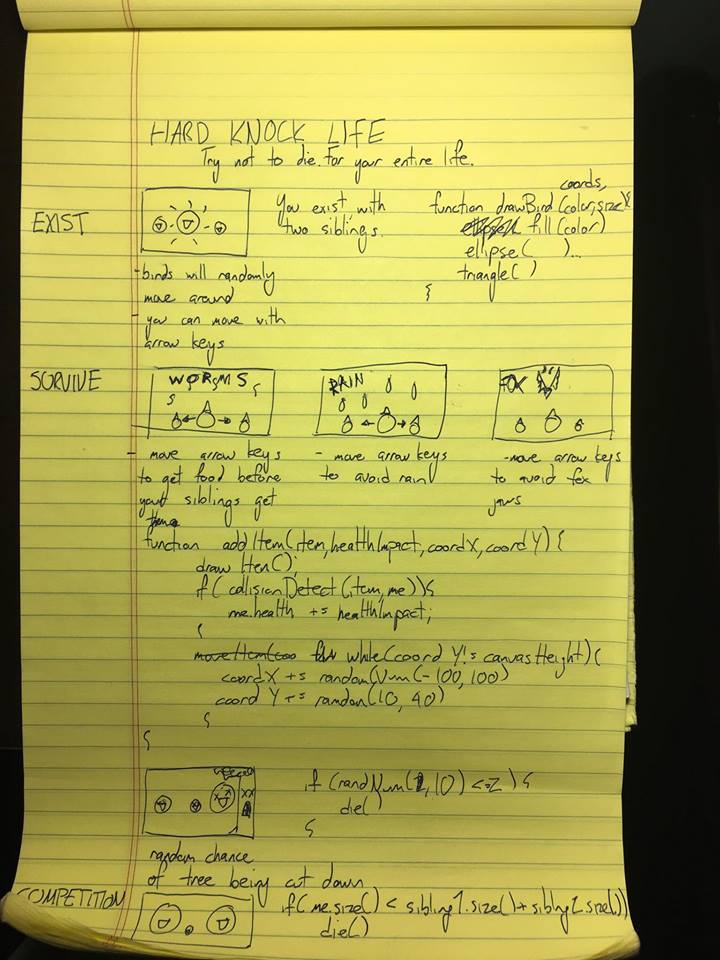 HARD KNOCK LIFE
Try not to die. For your entire life.
EXIST
You exist with
two siblings.
coords,
function drawBird(color, size){
fill(color)
ellipse( )...
triangle( )
}
- birds will randomly
move around
- you can move with
arrow keys
SURVIVE
WORMS
- move arrow keys
to get food before
your siblings get
them
RAIN
- move arrow keys
to avoid rain
FOX
- move arrow keys
to avoid fox
jaws
function addItem(item, healthImpact, coordX, coordY) {
draw Item();
if( collisionDetect(item, me)){
me.health += healthImpact;
}
moveItem(coo for while(coord Y != canvasHeight) {
coordX += random Num(-100, 100)
coord Y += random(10, 40)
}
}
XX
random chance
of tree being cut down
if (randNum(1, 10) <= 2) {
die(
}
COMPETITION
if( me.size() < sibling1.size() + sibling2.size())
die()